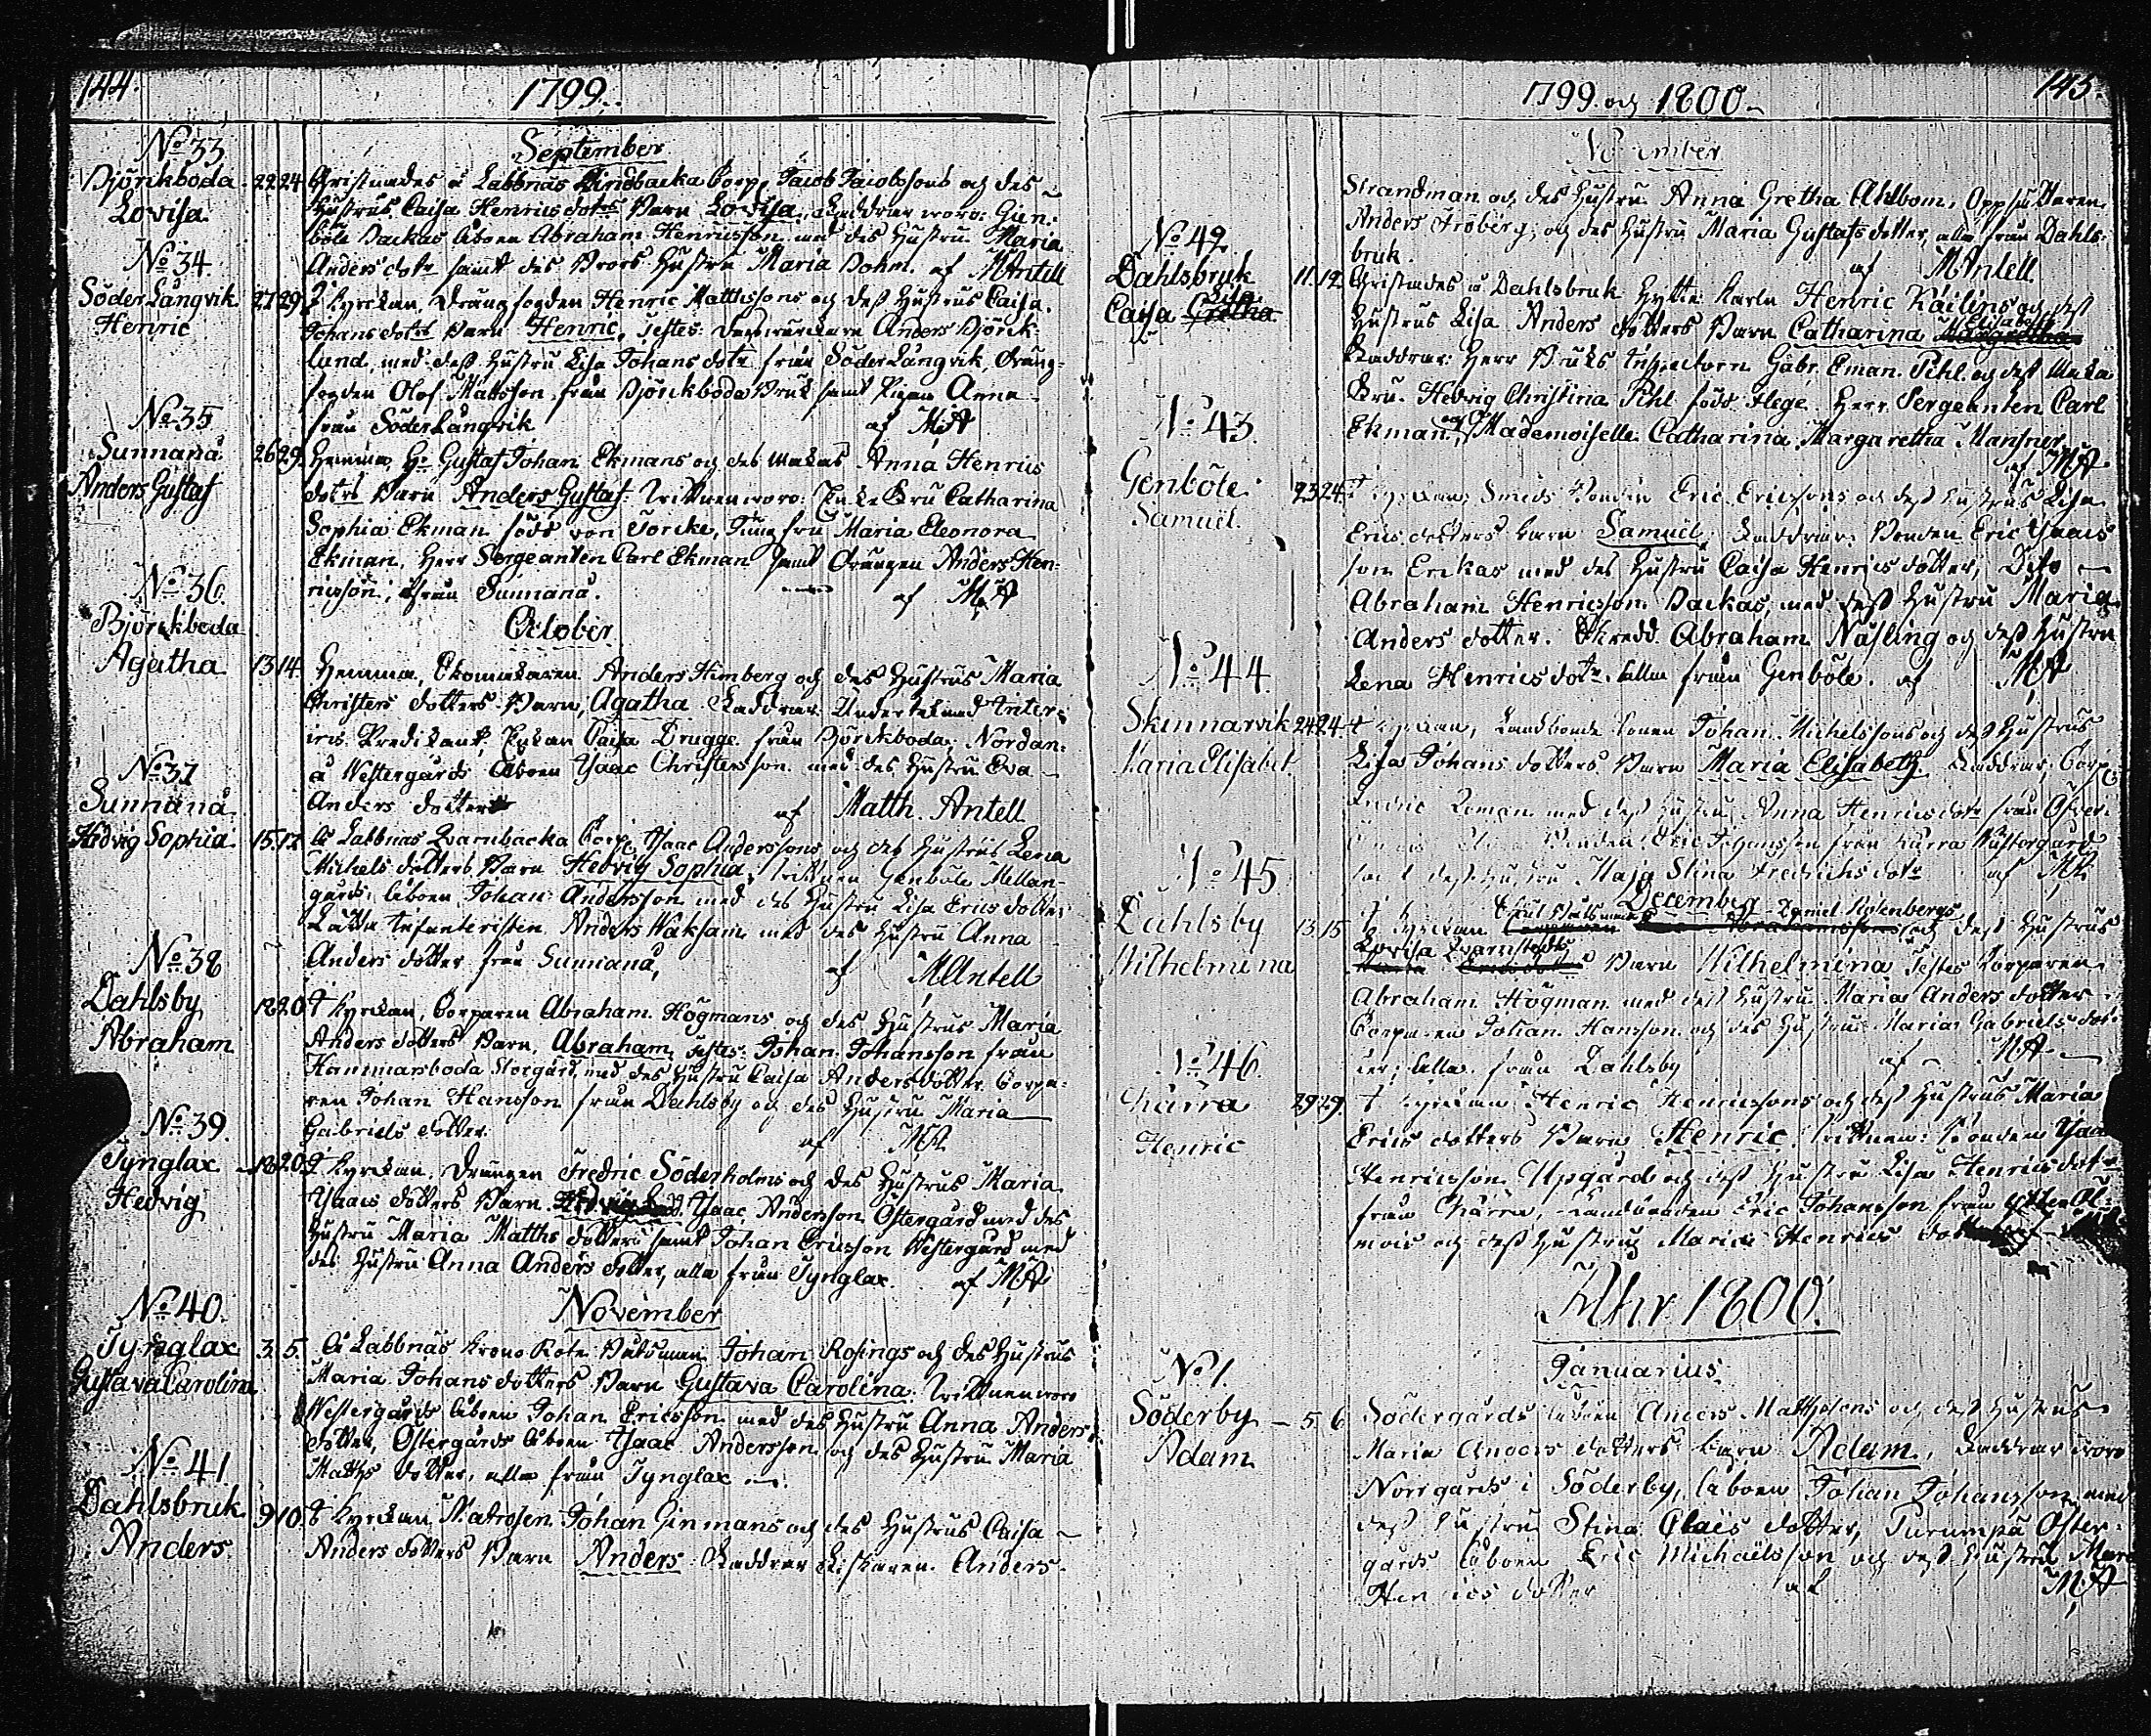 144.
1799.
September
No 33
Björkboda
Lovisa
22 24
Christnades å Labbnäs Lindbacka Corp. Jacob Jacobssons och des
hustrus Caisa Henrics dotrs Barn Lovisa, Faddrar woro: Gun-
böle Backas Åboen Abraham Henricsson med des Hustru Maria
Anders dotr samt des Brors Hustru Maria Bohm. af MAntell
No 34.
Söder Långvik
Henric
27 29
I kyrckan, Drängfogden Henric Matthssons och dess Hustrus Caisa
Johans dotrs Barn Henric, Testes: Anders Björk-
lund, med dess Hustru Lisa Johans dotr från Söder Långvik, Dräng-
fogden Olof Matsson från Björckboda Bruk samt Pigan Anna
från Söder Långvik af MA
No 35
Sunnanå
Anders Gustaf
26 29
Hemma, Hr Gustaf Johan Ekmans och des makas Anna Henrics
dotrs Barn Anders Gustaf. Wittnen woro: Enke Fru Catharina
Sophia Ekman född von Torcke, Jungfru Maria Eleonora
Ekman, Herr Sergeanten Carl Ekman samt Drängen Anders Hen-
ricsson, från Sunnanå. af MA
October
No 36.
Björckboda
Agatha
13 14.
Hemma, Anders Himberg och des Hustrus Maria
Christers dotters Barn, Agatha. Faddrar: Undertecknad
Predikant, Enkan Caisa Brugge från Björckboda, Nordan-
å Westergårds Åboen Isaac Christersson med des Hustru Eva
Anders dotter af Matth. Antell
No 37
Sunnanå
Hedvig Sophia
15 17
Å Labbnäs Qvarnbacka Corp. Isaac Anderssons och des Hustrus Lena
Michels dotters Barn Hedvig Sophia, wittnen Genböle Mellan-
gårds åboen Johan Andersson med des Hustru Lisa Erics dotter
Infanteristen Anders Waksam med des Hustru Anna
Anders dotter från Sunnanå, af MAntell
No 38
Dahlsby
Abraham
18 20
I kyrckan, Corparen Abraham Högmans och des Hustrus Maria
Anders dotters Barn, Abraham, Testes: Johan Johansson från
Hammarsboda Storgård, med des Hustru Caisa Anders dotter, Corpa-
ren Johan Hansson från Dahlsby och des Hustru Maria
Gabriels dotter. af MA
No 39.
Tynglax
Hedvig
18 20
I kyrckan, Drängen Fredric Söderholms och des Hustrus Maria
Isaacs dotters Barn Hedvig Isaac Andersson Östergård med des
Hustru Maria Matths dotter samt Johan Ericsson Westergård med
des Hustru Anna Anders dotter, alla från Tynglax. af MA
November
No 40.
Tynglax
Gustava Carolina
3. 5.
Å Labbnäs Krono Rote Båtsman Johan Rosings och des Hustrus
Maria Johans dotters Barn Gustava Carolina. Wittnen woro
Westergårds åboen Johan Ericsson med des Hustru Anna Anders
dotter, Östergårds åboen Isaac Andersson och des Hustru Maria
Matths dotter, alla från Tynglax
No 41
Dahlsbruk
Anders
9 10.
I kyrckan Matrosen Johan Ginmans och des Hustrus Caisa
Anders dotters Barn Anders. Faddrar Anders
1799. och 1800.
145.
November
Strandman och des Hustru Anna Gretha Ahlbom, Oppsyttaren
Anders Fröberg, och des Hustru Maria Gustafs dotter, alla från Dahls-
bruk. af MAntell
No 42
Dahlsbruk
Caisa Gretha Lisa
11. 12
Christnades å Dahlsbruk Hytte karln Henric Käilins och dess
Hustrus Lisa Anders dotters Barn Catharina Margretha Elisabet
Faddrar: Herr Bruks Inspectorn Gabr. Eman. Pihl och dess Maka
Fru Hedvig Christina Pihl född Flege. Herr Sergeanten Carl
Ekman, och Mademoiselle Catharina Margaretha Mansner
af MA
No 43.
Genböle
Samuel.
23 24
I kyrckan, Smeds Bonden Eric Ericssons och dess Hustrus Lisa
Erics dotters barn Samuel, Faddrar: Bonden Eric Isaacs
son Erikas med des Hustru Caisa Henrics dotter, Dito
Abraham Henricsson Backas, med dess Hustru Maria
Anders dotter. Skredd. Abraham Näsling och dess Hustru
Lena Henrics dotr. alla från Genböle. af MA
No 44
Skinnarvik
Maria Elisabet.
24 24
I kyrckan, Landbonde sonen Johan Michelssons och dess Hustrus
Lisa Johans dotters Barn Maria Elisabeth. Faddrar, Corp.
med dess Hustru Anna Henrics dotr från Öster-
Bonden Eric Johansson från Kärra Wästergård
dess Hustru Maja Stina Fredrichs dotr af MA
December
No 45
Dahlsby
Wilhelmina
13 15
I kyrckan Daniel Rosenbergs och dess Hustrus
Lovisa Qvarnstedts Barn Wilhelmina Testes Corparen
Abraham Högman med dess Hustru Maria Anders dotter
Corparen Johan Hansson och des Hustru Maria Gabriels dot-
ter, alla från Dahlsby af MA
No 46.
Chärra
Henric
29 29.
I kyrckan Henric Henricssons och dess Hustrus Maria
Erics dotters Barn Henric. Wittnen: Bonden Isaac
Henricsson Uppgård och dess Hustru Lisa Henrics dotr
från Chärra, Landbonden Eric Johansson från
och dess Hustru Maria Henrics dotter
Åhr 1800.
Januarius
No 1.
Söderby
Adam
5 6
Södergårds åboen Anders Matthssons och dess Hustrus
Maria Anders dotters barn Adam, Faddrar woro
Norrgårds i Söderby, åboen Johan Johansson med
dess Hustru Stina Claes dotter, Öster-
gårds åboen Eric Michaëlsson och dess Hustru Maria
Henrics dotter af MA